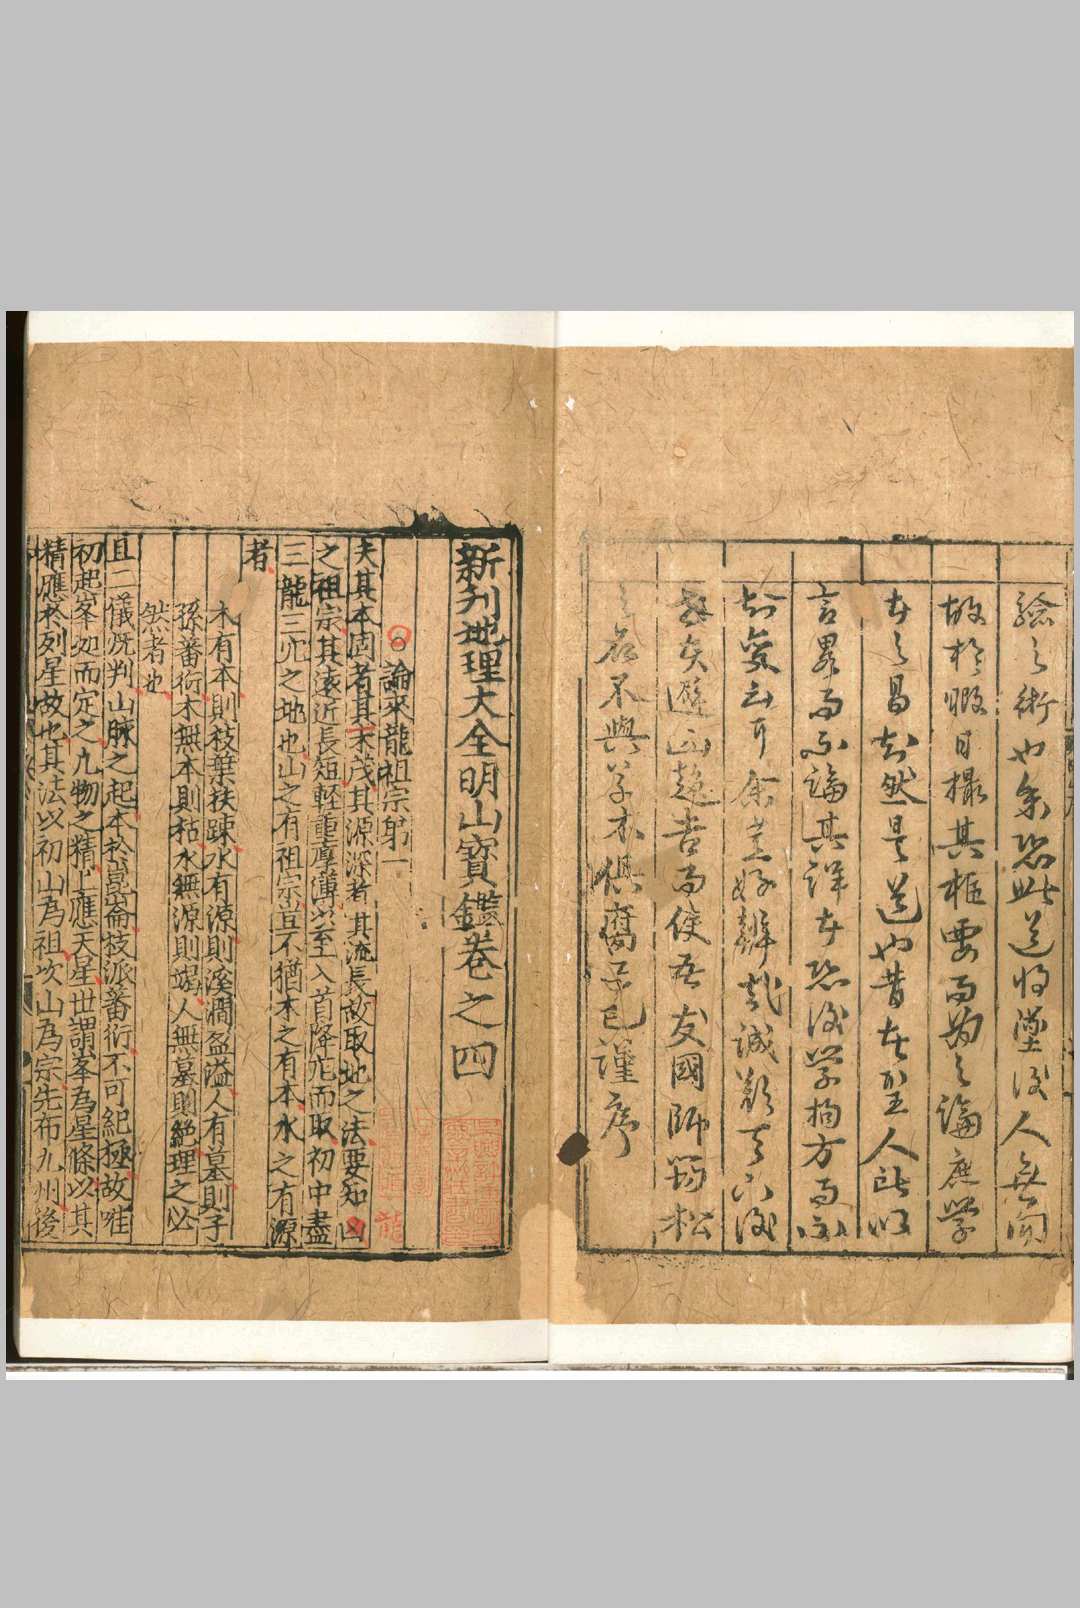 驗之術也余恐此道將墜後人無聞
故於暇日撮其樞要而為之論庶學
者之昌知然是道也昔者至人所以
言畧而不論其詳者恐後學拘方而不
知變云耳余豈好辯哉誠欲天下後
世去避凶趨吉而使吾友國師筠松
之名不與草木俱腐而已謹序
新刋地理大全明山寶鑑卷之四
論來龍祖宗第一
夫其本固者其末茂其源深者其流長故取地之法要知山
之祖宗其遠近長短輕重厚薄以至入首降穴而取初中盡
三龍三穴之地也山之有祖宗亙不猶木之有本水之有源
者
木有本則枝葉扶踈水有源則溪澗盈溢人有墓則子
孫蕃衍木無本則枯水無源則竭人無墓則絕理之必
然者也
且二儀旣判山脉之起本於崑崙枝派蕃衍不可紀極故唯
初起峯処而定之九物之精上應天星世謂峯為星條以其
精應於列星故也其法以初山為祖次山為宗先布九州後